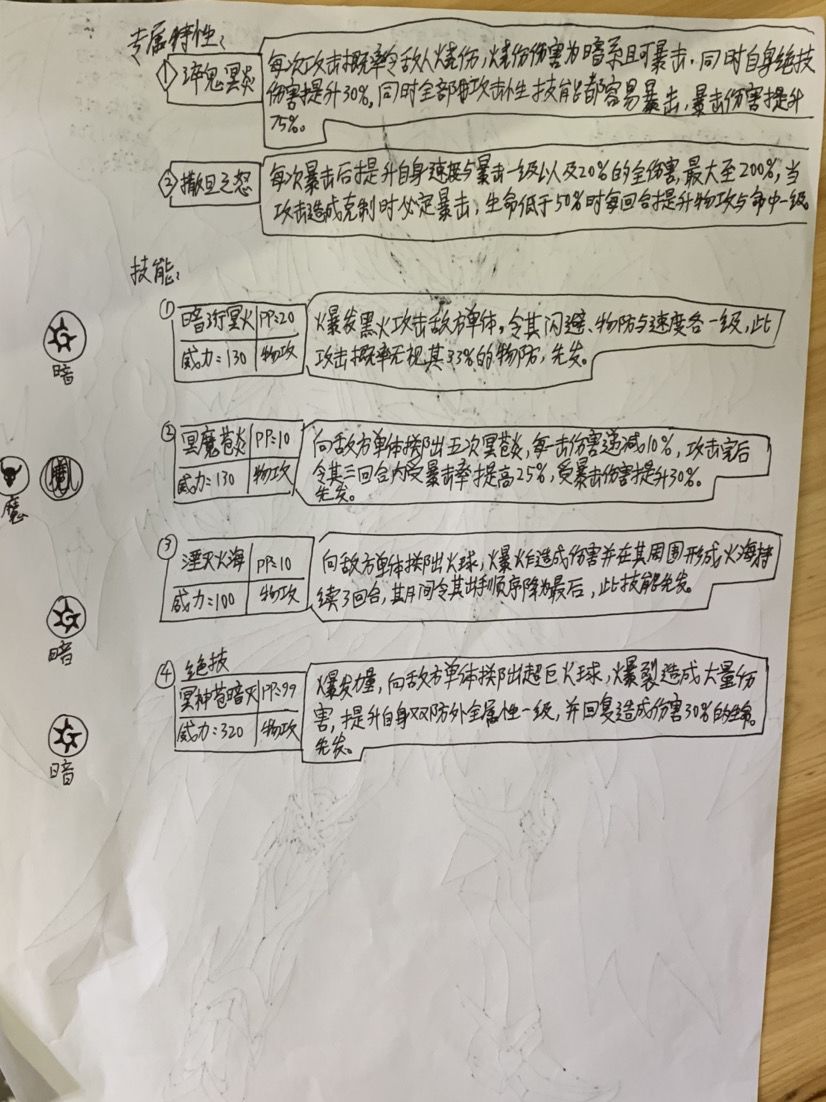 专属特性:
① 淬鬼冥炎
每次攻击概率令敌人烧伤,烧伤伤害为暗系且可暴击.同时自身绝技
伤害提升30%,同时全部攻击性技能都容易暴击,暴击伤害提升
75%。
② 撒旦之怒
每次暴击后提升自身速度与暴击一级以及20%的全伤害,最大至200%,当
攻击造成克制时必定暴击,生命低于50%时每回合提升物攻与命中一级。
技能:
① 暗冥火 PP:20
威力:130 物攻
爆发黑火攻击敌方单体。令其闪避、物防与速度各一级,此
攻击概率无视其33%的物防,先发。
暗
② 冥魔苍炎 PP:10
威力:130 物攻
向敌方单体掷出五次冥苍炎,每一击伤害递减10%,攻击完后
令其三回合内受暴击率提高25%,受暴击伤害提升30%。
先发。
魔
魔
③ 湮灭火海 PP:10
威力:100 物攻
向敌方单体掷出火球,爆炸造成伤害并在其周围形成火海持
续3回合,其间令其出手顺序降为最后,此技能先发。
暗
④ 绝技
冥神苍暗灭 PP:99
威力:320 物攻
爆发力量,向敌方单体掷出超巨火球,爆裂造成大量伤
害,提升自身双防外全属性一级,并回复造成伤害30%的生命。
先发。
暗